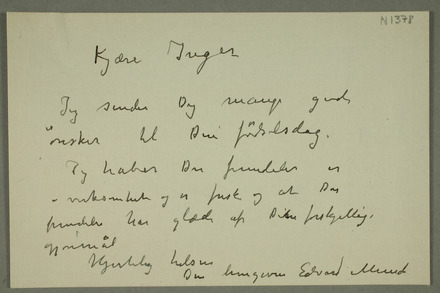 N1378
Kjære Inger
Jeg sender Dig mange gode
ønsker til Din fødselsdag.
Jeg haaber Du fremdeles er
i virksomhed og er frisk og at Du
fremdeles har glæde af Din forskjellige
gjøremål
Hjertelig hilsen
Din hengivne Edvard Munch